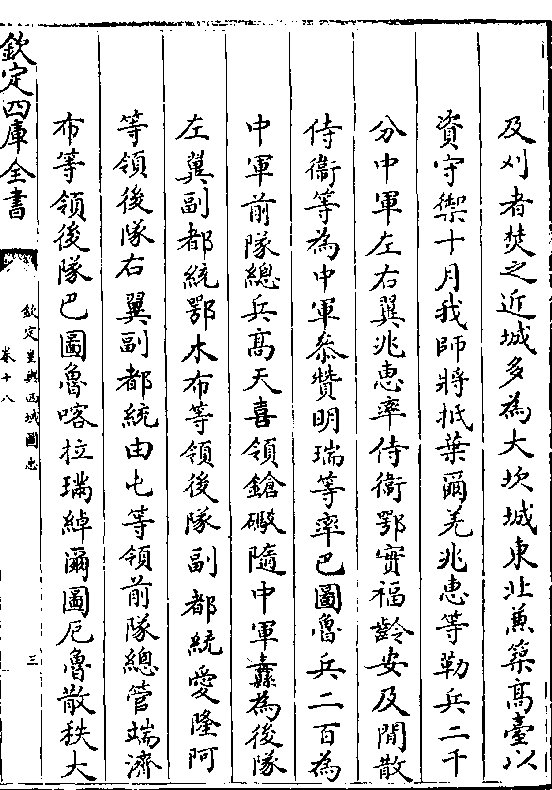 及刈者焚之近城多為大坎城東北兼築高臺以
資守禦十月我師將抵葉爾羌兆惠等勒兵二千
分中軍左右翼兆惠率侍衛鄂實福齡安及閒散
侍衛等為中軍叅贊明瑞等率巴圖魯兵二百為
中軍前隊總兵高天喜領鎗礮隨中軍纛為後隊
左翼副都統鄂木布等領後隊副都統愛隆阿
等領後隊右翼副都統由屯等領前隊總管端濟
布等領後隊巴圖魯喀拉瑪綽爾圖厄魯散秩大
欽定四庫全書
欽定皇輿西域圖志
卷十八
三